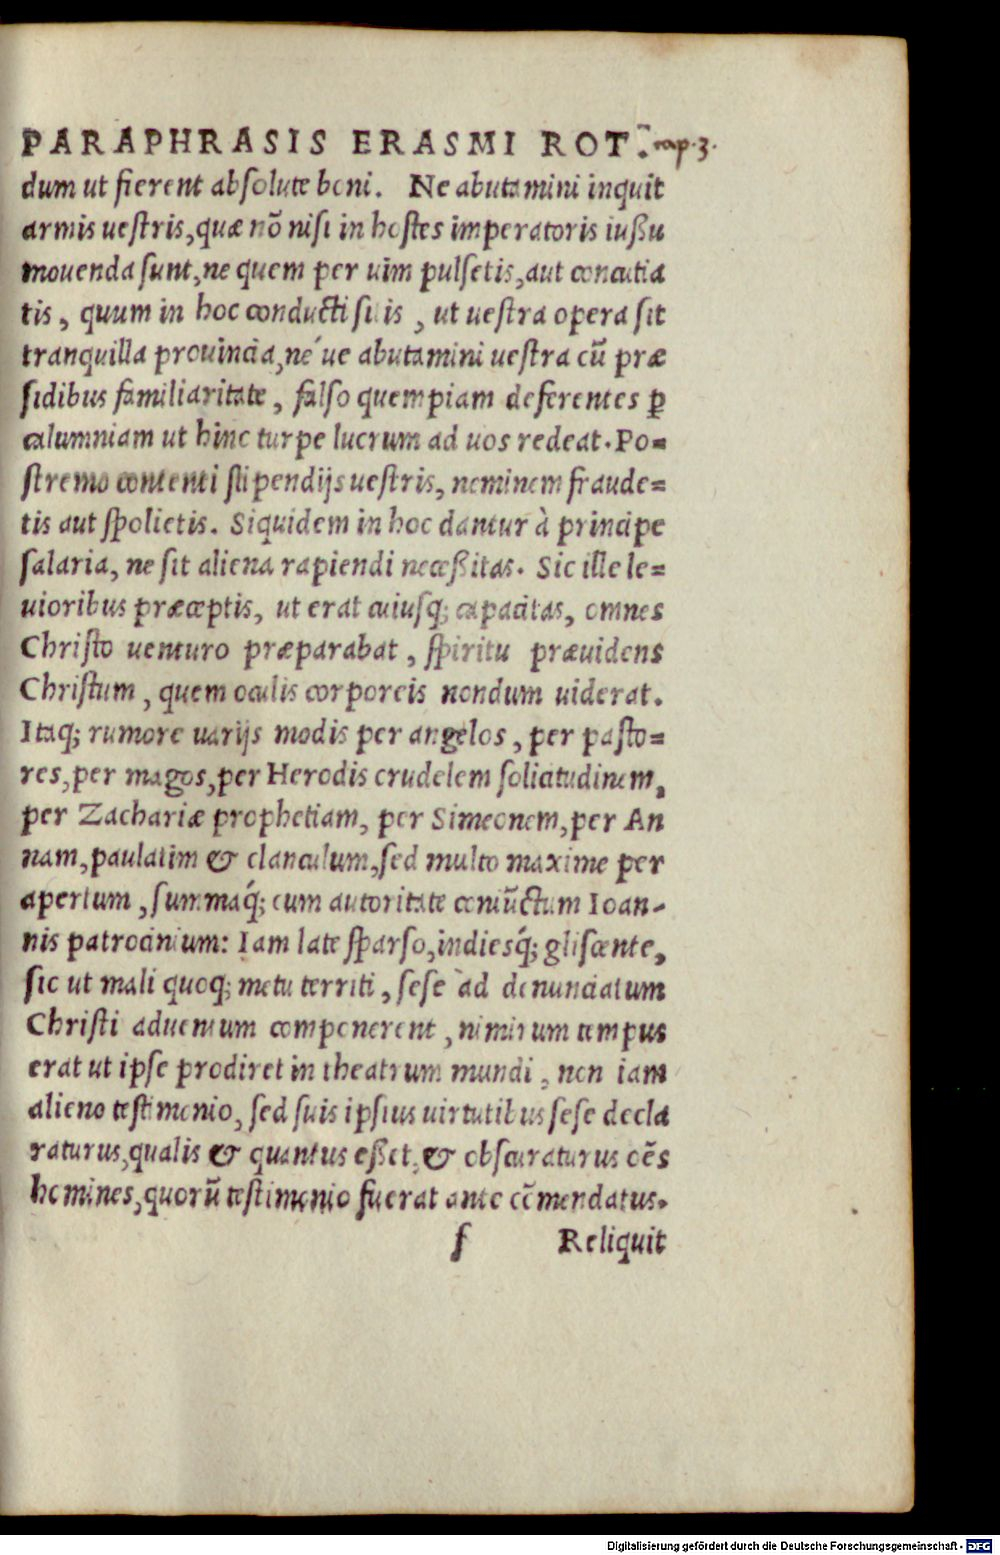 PARAPHRASIS ERASMI ROT. cap. 3.
dum ut fierent absolute boni. Ne abutamini inquit
armis uestris, quæ nō nisi in hostes imperatoris iußu
mouenda sunt, ne quem per uim pulsetis, aut concutia
tis, quum in hoc conducti sitis, ut uestra opera sit
tranquilla prouincia, né ue abutamini uestra cū præ
sidibus familiaritate, falso quempiam deferentes ꝑ
calumniam ut hinc turpe lucrum ad uos redeat. Po=
stremo contenti stipendijs uestris, neminem fraude=
tis aut spolietis. Siquidem in hoc dantur à principe
salaria, ne sit aliena rapiendi neceßitas. Sic ille le=
uioribus præceptis, ut erat cuiusq; capacitas, omnes
Christo uenturo præparabat, spiritu præuidens
Christum, quem oculis corporeis nondum uiderat.
Itaq; rumore uarijs modis per angelos, per pasto=
res, per magos, per Herodis crudelem solicitudinem,
per Zachariæ prophetiam, per Simeonem, per An
nam, paulatim & clanculum, sed multo maxime per
apertum, summaq́; cum autoritate coniūctum Ioan-
nis patrocinium: Iam late sparso, indiesq́; gliscente,
sic ut mali quoq; metu territi, sese ad denunciatum
Christi aduentum componerent, nimirum tempus
erat ut ipse prodiret in theatrum mundi, non iam
alieno testimonio, sed suis ipsius uirtutibus sese decla
raturus, qualis & quantus eßet, & obscuraturus oēs
homines, quorū testimonio fuerat ante cōmendatus.
f Reliquit
Digitalisierung gefördert durch die Deutsche Forschungsgemeinschaft - DFG